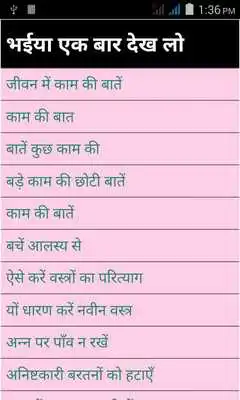 1:36 PM
भईया एक बार देख लो
जीवन में काम की बातें
काम की बात
बातें कुछ काम की
बड़े काम की छोटी बातें
काम की बातें
बचें आलस्य से
ऐसे करें वस्त्रों का परित्याग
यों धारण करें नवीन वस्त्र
अन्न पर पाँव न रखें
अनिष्टकारी बरतनों को हटाएँ